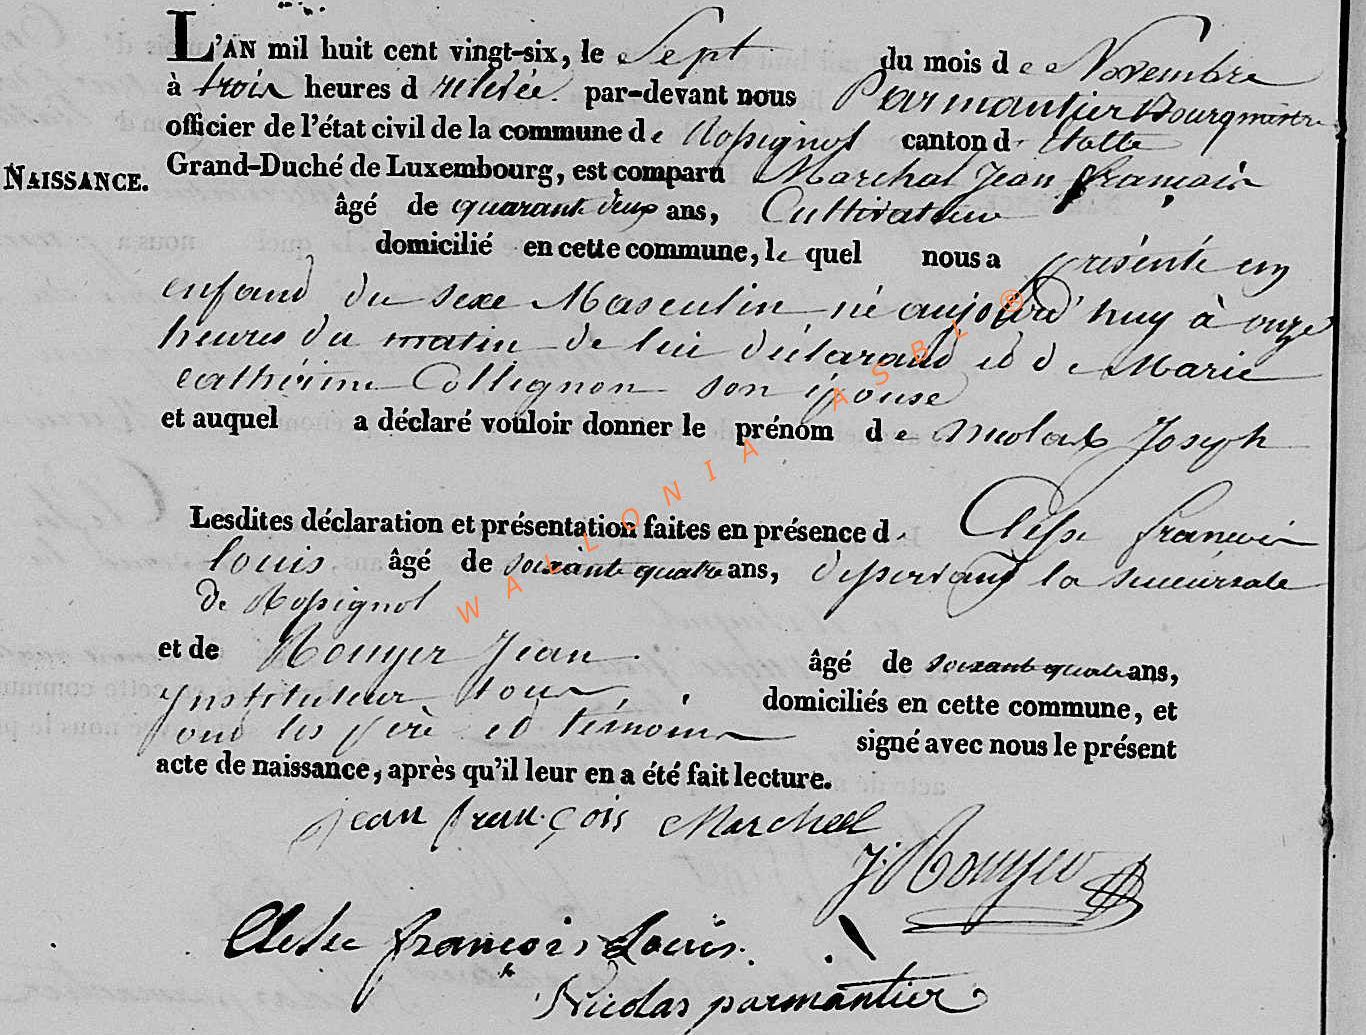 L'AN mil huit cent vingt-six, le Sept du mois de Novembre
à trois heures d relevée par-devant nous Parmantier Bourgmestre
officier de l'état civil de la commune de Rossignol canton d' Etalle
NAISSANCE. Grand-Duché de Luxembourg, est comparu Marchal Jean françois
âgé de quarant deux ans, Cultivateur
domicilié en cette commune, le quel nous a présenté un
enfant du sexe Masculin né aujourd'huy à onze
heures du matin de lui déclarant et de Marie
catherine Collignon son épouse
et auquel a déclaré vouloir donner le prénom de Nicolas Joseph
Lesdites déclaration et présentation faites en présence d. françois
louis âgé de soixante quatre ans, desservant la succursale
de Rossignol
et de Rouyer Jean âgé de soixante quatre ans,
instituteur tous domiciliés en cette commune, et
ont les père et témoins signé avec nous le présent
acte de naissance, après qu'il leur en a été fait lecture.
jean françois Marchal
J. Rouyer
françois Louis.
Nicolas parmantier
WALLONIA ASBL ®